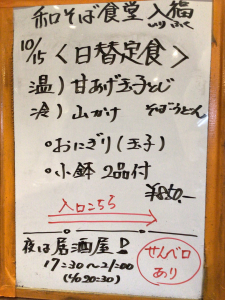 和そば食堂 入福
いりふく
10/15 <日替定食>
温) 甘あげ玉子とじ
冷) 山かけ そばorうどん
・おにぎり(玉子)
・小鉢 2品付
¥850.-
入口こちら
夜は居酒屋
17:30〜21:00
(LO 20:30)
せんべロあり